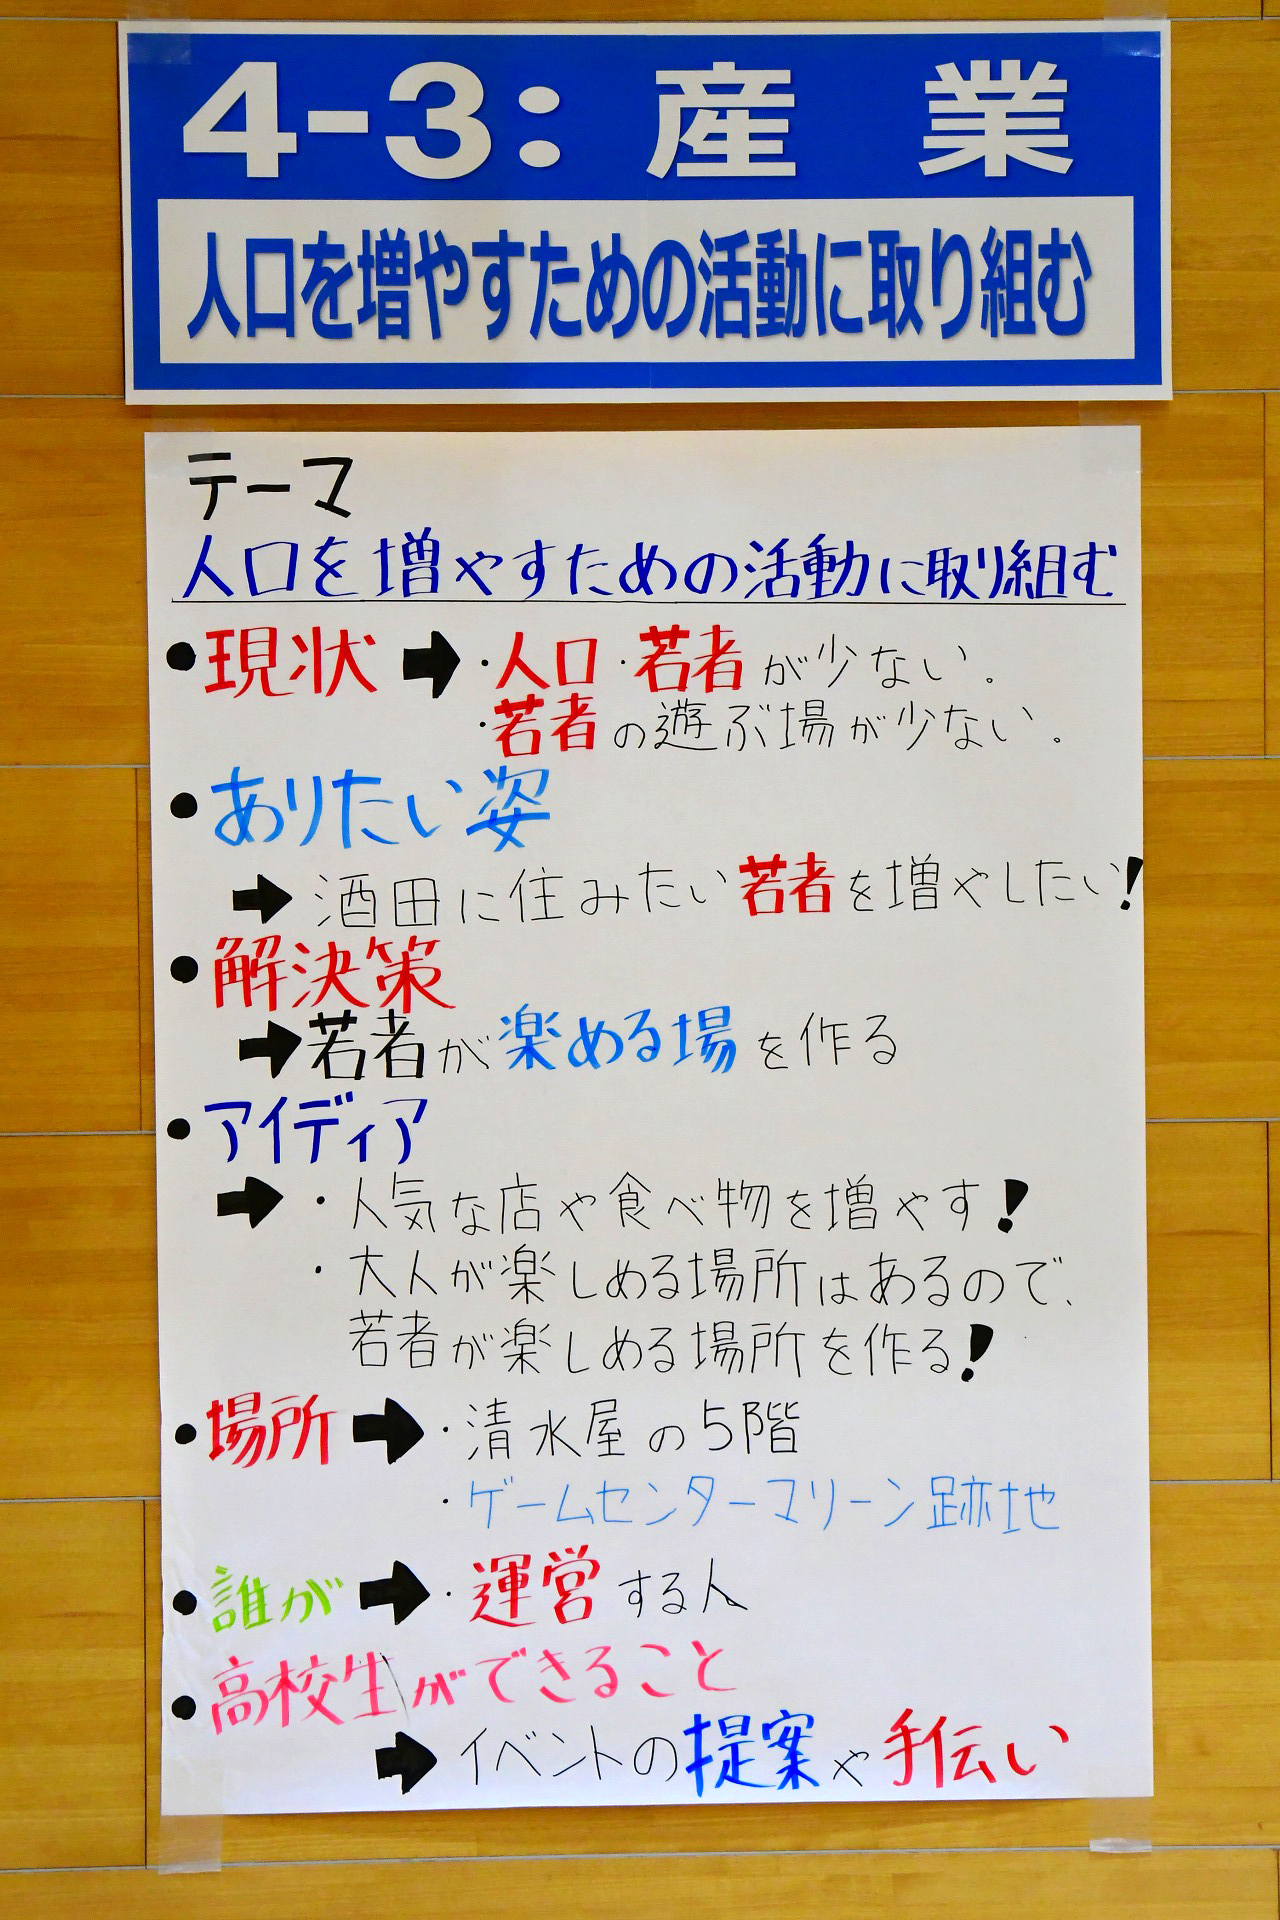 4-3: 産 業
人口を増やすための活動に取り組む
テーマ
人口を増やすための活動に取り組む
●現状 ➡ ・人口・若者が少ない。
・若者の遊ぶ場が少ない。
●ありたい姿
➡ 酒田に住みたい若者を増やしたい!
●解決策
➡若者が楽める場を作る
●アイディア
➡ ・人気な店や食べ物を増やす!
・大人が楽しめる場所はあるので、
若者が楽しめる場所を作る!
●場所 ➡ ・清水屋の5階
・ゲームセンターマリーン跡地
●誰が ➡ ・運営する人
●高校生ができること
➡ イベントの提案や手伝い